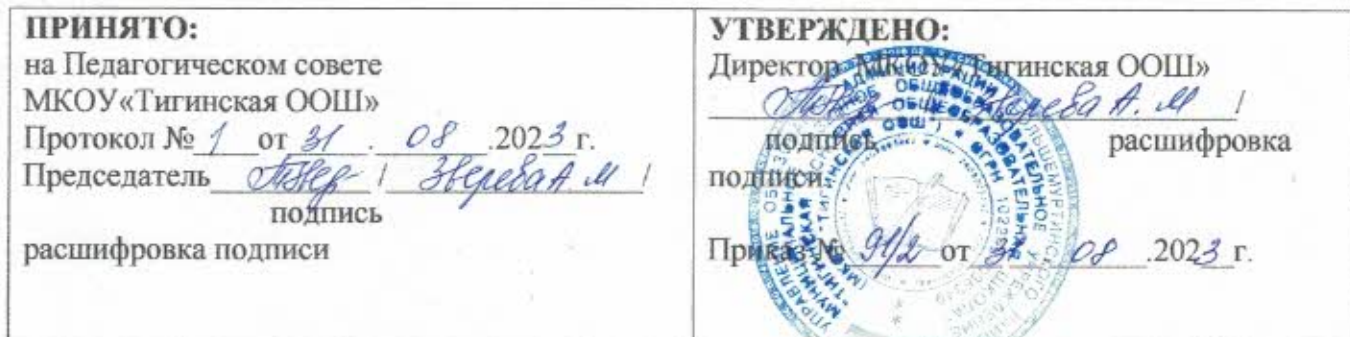 ПРИНЯТО:
на Педагогическом совете
МКОУ«Тигинская ООШ»
Протокол № 1 от 31 . 08 .2023 г.
Председатель / Зверева А. М /
подпись
расшифровка подписи
УТВЕРЖДЕНО:
Директор МКОУ «Тигинская ООШ»
Зверева А. М /
подпись расшифровка
подписи
Приказ № 91/2 от 3 . 08 .2023 г.